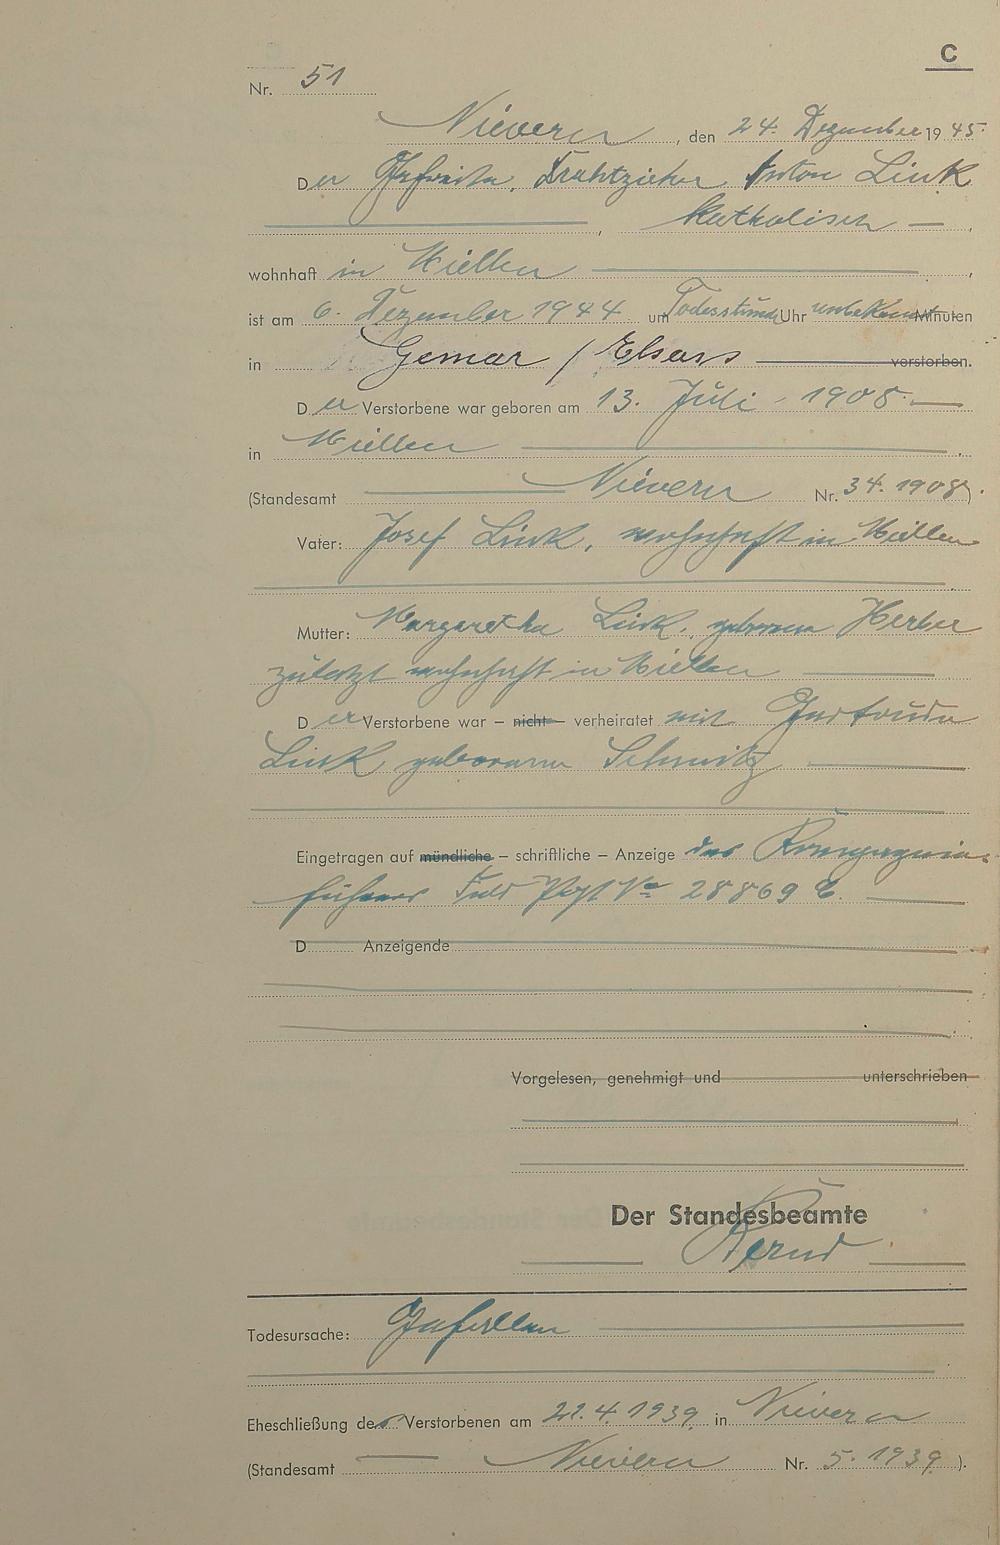 C
Nr. 51
Nievern, den 24. Dezember 1945.
Der Gefreite, Drahtzieher Anton Link
, katholisch ,
wohnhaft in Miellen ,
ist am 6. Dezember 1944 um Todesstunde Uhr unbekannt Minuten
in Gemar / Elsass verstorben.
Der Verstorbene war geboren am 13. Juli 1908.
in Miellen .
(Standesamt Nievern Nr. 34. 1908).
Vater: Josef Link, wohnhaft in Miellen
Mutter: Margaretha Link, geborene Herber
zuletzt wohnhaft in Miellen
Der Verstorbene war – nicht – verheiratet mit Gertrude
Link geborene Schmitz
Eingetragen auf mündliche – schriftliche – Anzeige des Kompagnie-
führers Feld Post No 28869
D Anzeigende
Vorgelesen, genehmigt und unterschrieben
Der Standesbeamte
Todesursache: Gefallen
Eheschließung des Verstorbenen am 22.4.1939 in Nievern
(Standesamt Nievern Nr. 5. 1939 ).